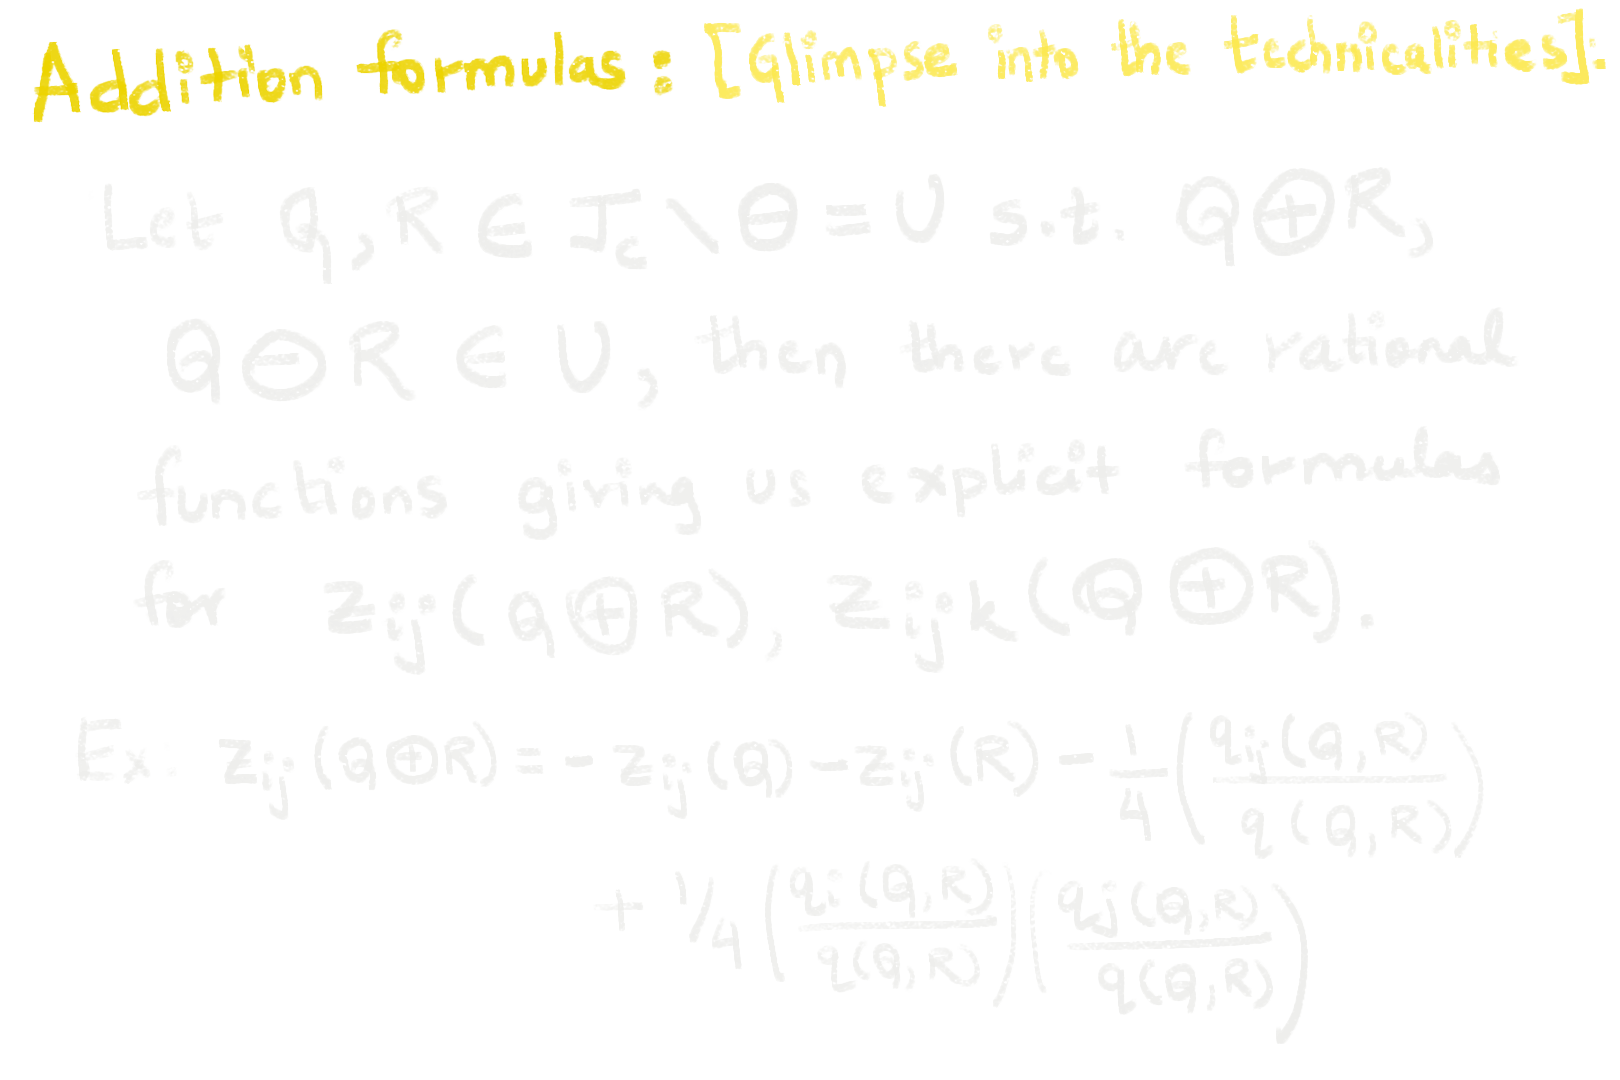 Addition formulas : [Glimpse into the technicalities].
Let Q, R ∈ J_C \ Θ = U s.t. Q ⊕ R,
Q ⊖ R ∈ U, then there are rational
functions giving us explicit formulas
for z_{ij}(Q ⊕ R), z_{ijk}(Q ⊕ R).
Ex: z_{ij}(Q⊕R) = - z_{ij}(Q) - z_{ij}(R) - 1/4 (q_{ij}(Q,R) / q(Q,R))
+ 1/4 (q_i(Q,R) / q(Q,R)) (q_j(Q,R) / q(Q,R))